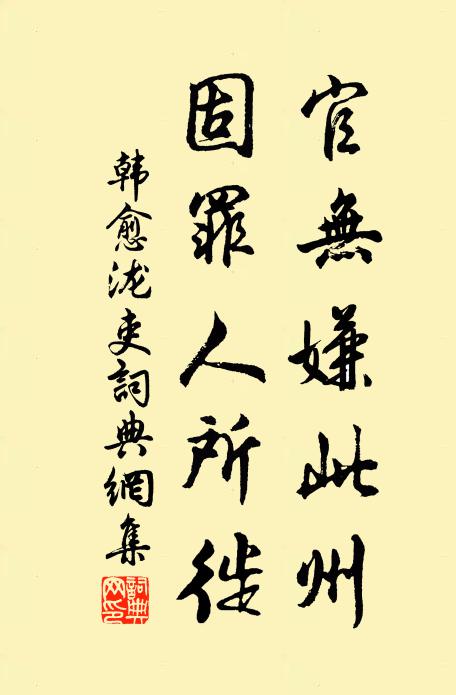 官無嫌此州
固罪人所徙
韩愈泷吏詞典網集
詞典網印